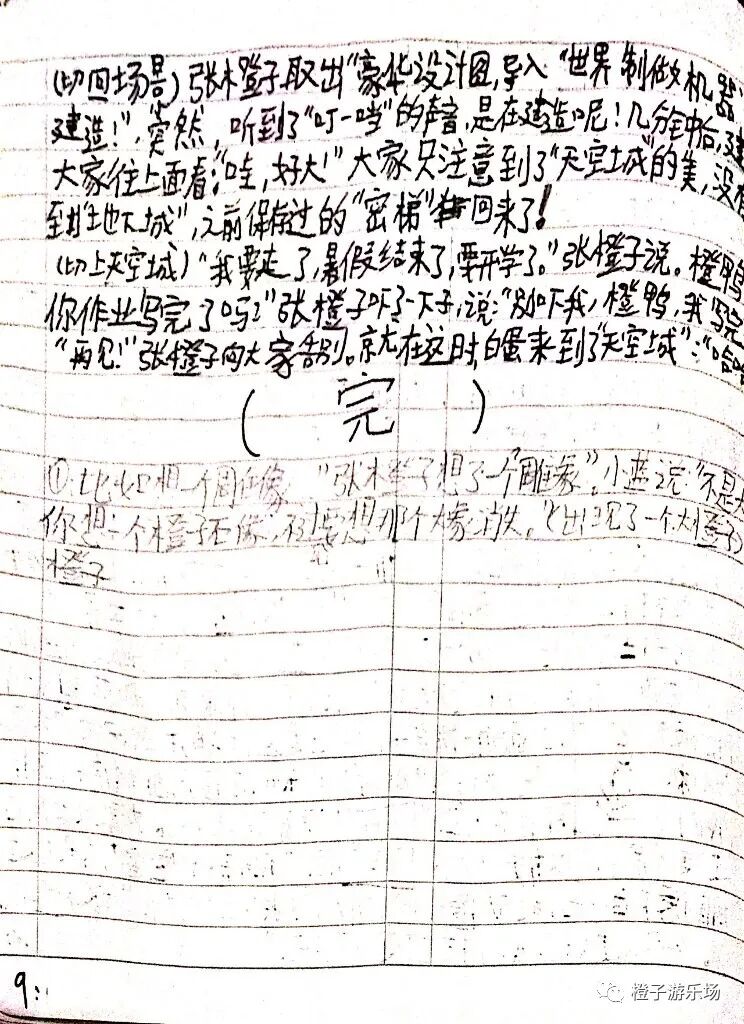 (切回场景)张橙子取出“豪华设计图,导入“世界制做机器:
建造!”,突然,听到了“叮一噹”的声音,是在建造呢!几分钟后,建
大家往上面看:“哇,好大!”大家只注意到了“天空城”的美,没有
到“地下城”,之前保存过的“密梯” 回来了!
(切上天空城)“我要走了,暑假结束了,要开学了。”张橙子说。橙鸭
你作业写完了吗?”张橙子吓了一下子,说:“别吓我,橙鸭,我写完
“再见!”张橙子向大家告别。就在这时,白蛋来到了“天空城”:“哈哈
(完)
①比如想一个雕像,“张橙子想了一个“雕像”。小蓝说“不是大
你想一个橙子 像, 要想那个大象消失。”(出现了一个大橙子)
橙子
9:
橙子游乐场